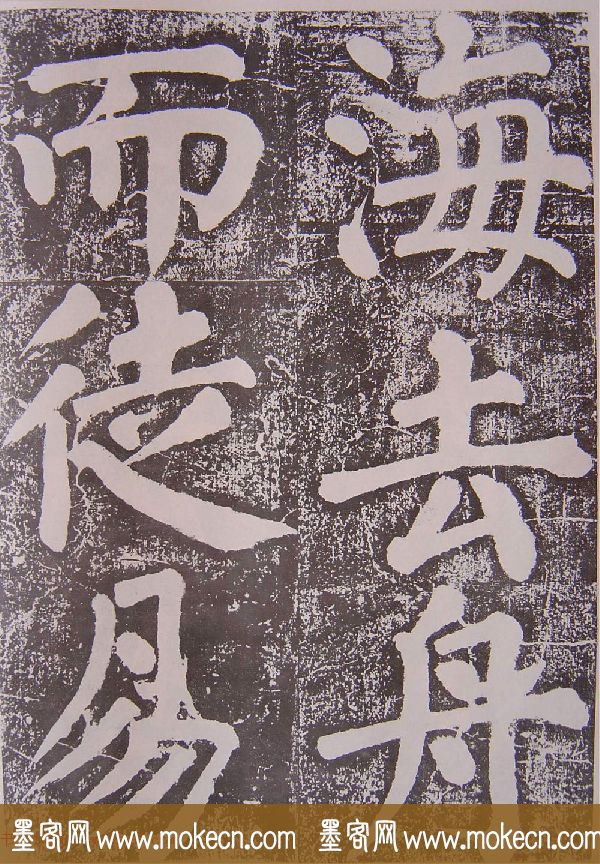 海去舟
而徒易
墨客网 www.mokecn.com 墨客网 www.mokecn.com